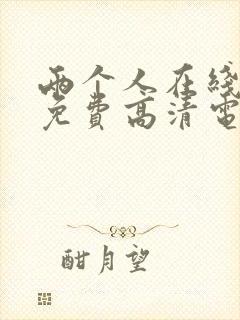 两个人在线
免费高清电
酣月望